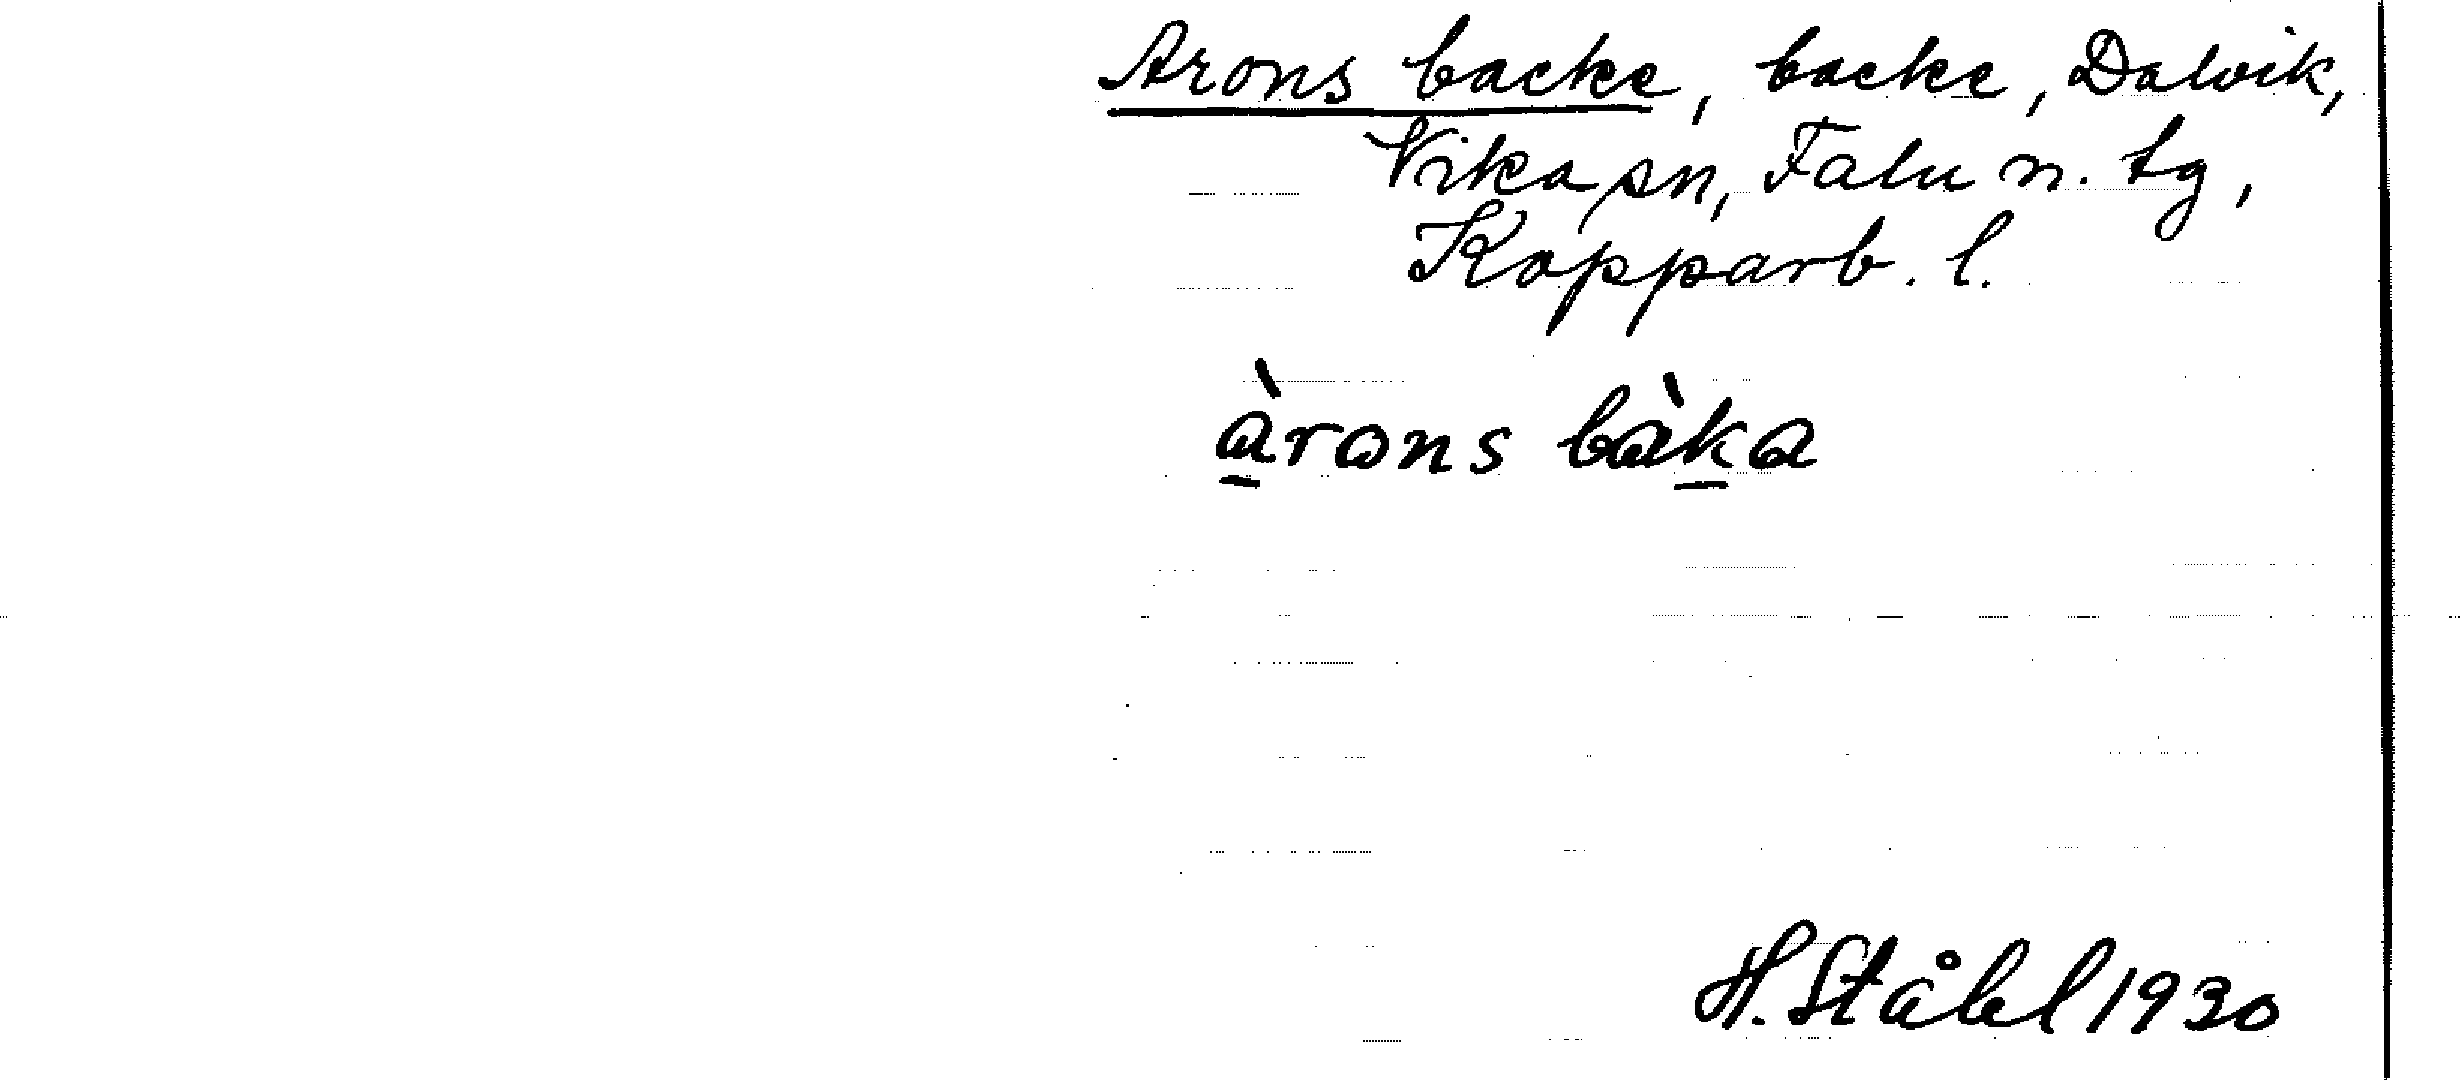 Arons backe, backe, Dalvik,
Vika sn, Falu n. tg,
Kopparb. l.
à̱rons bàḵa
H. Ståhl 1930